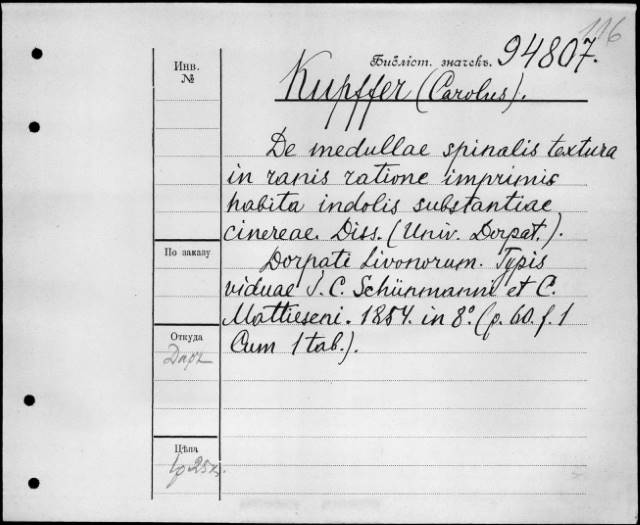 116
Библіот. значекъ. 94807.
Инв.
№
Kupffer (Carolus).
De medullae spinalis textura
in ranis ratione imprimis
habita indolis substantiae
cinereae. Diss. (Univ. Dorpat.).
По заказу
Dorpate Livonorum. Typis
viduae J. C. Schünmanni et C.
Mattieseni. 1854. in 8º. (p. 60. f. 1
Откуда
Cum 1 tab.).
Цѣна